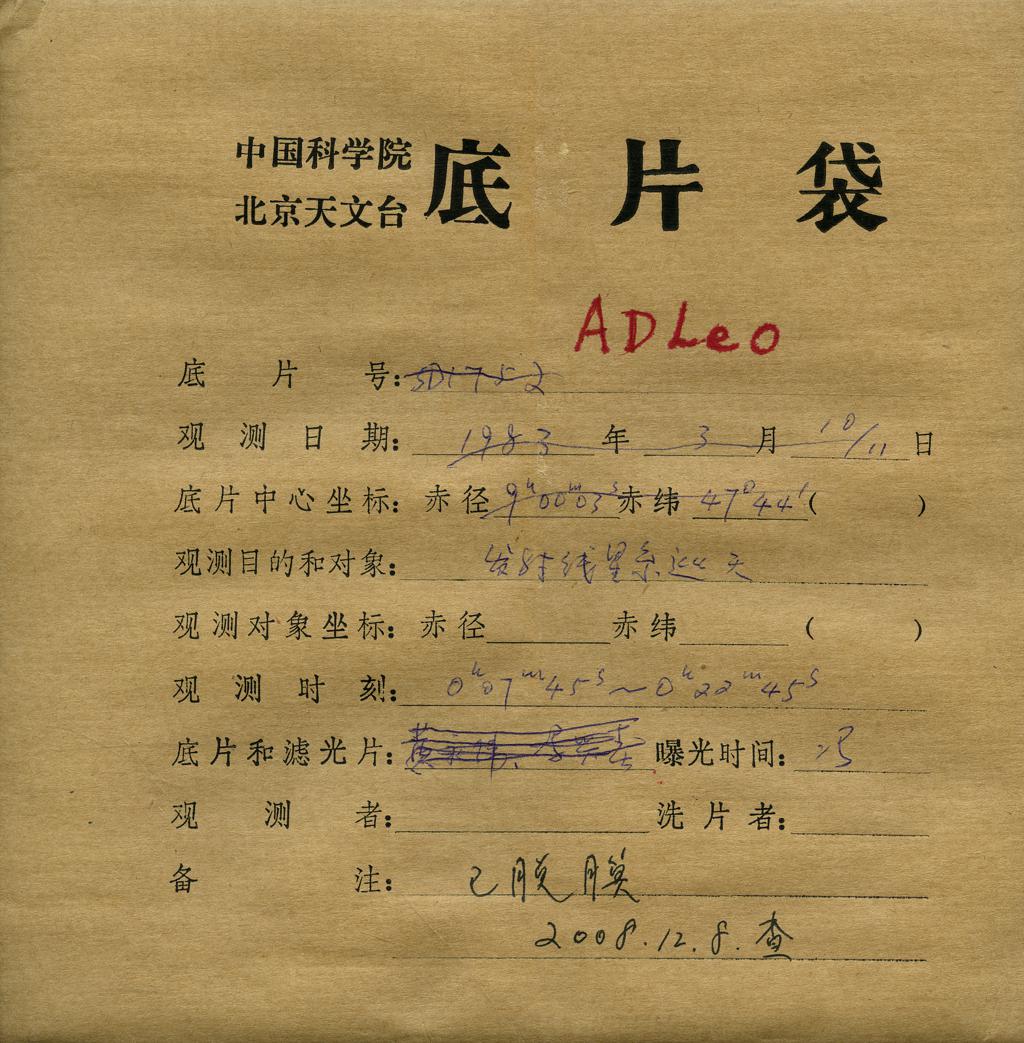 中国科学院
北京天文台
底片袋
ADLeo
底片号: SD1752
观测日期: 1983年 3月 10/11日
底片中心坐标: 赤径 9h00m03s 赤纬 47°44′( )
观测目的和对象: 发射线星系巡天
观测对象坐标: 赤径 赤纬 ( )
观测时刻: 0h07m45s~0h22m45s
底片和滤光片: 黄 曝光时间:
观测者: 洗片者:
备注: 已脱膜
2008.12.8.查